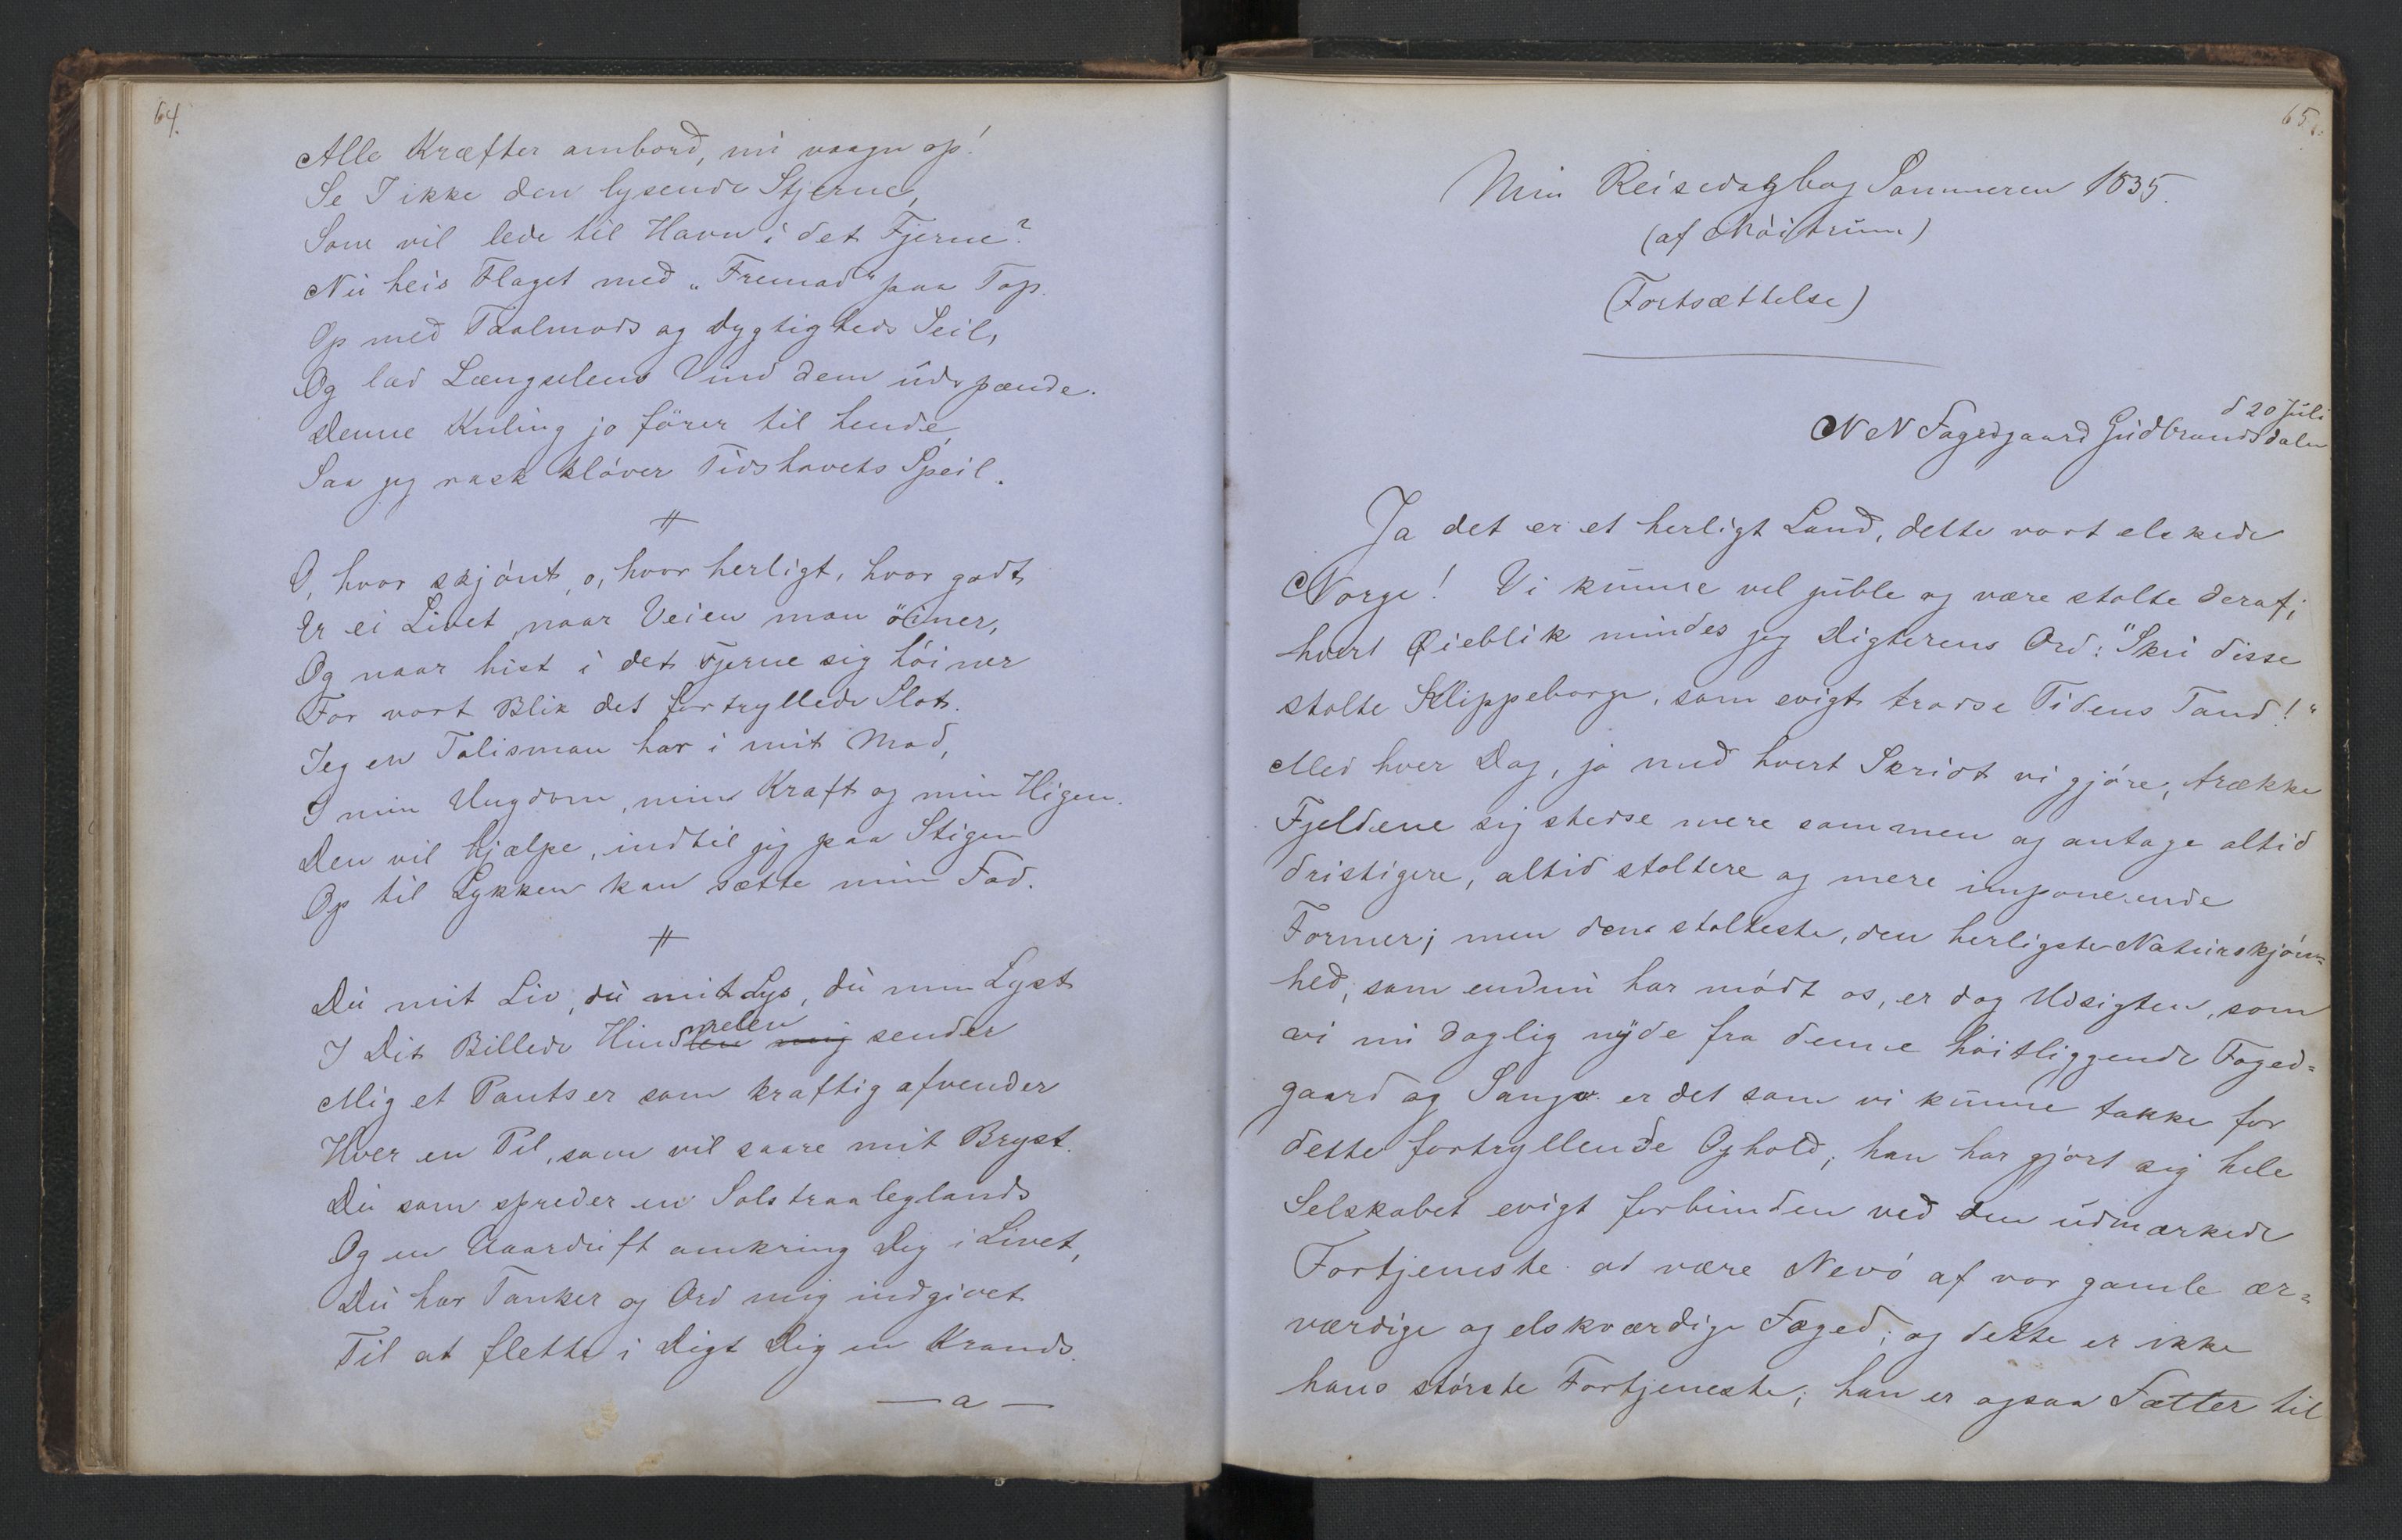 64.
Alle Kræfter ombord, nu vaagn op!
Se I ikke den lysende Stjerne,
Som vil lede til Havn i det Fjerne?
Nu heis Flaget med „Fremad“ paa Top.
Op med Taalmods og Dygtigheds Seil,
Og lad Længselens Vind dem udspænde.
Denne Kuling jo fører til hende,
Saa jeg rask kløver Tidshavets Speil.
O, hvor skjønt, o, hvor herligt, hvor godt
Er ei Livet, naar Veien man öiner,
Og naar hist i det Fjerne sig høiner
For vort Blik det fortryllede Slot.
Jeg en Talisman har i mit Mod,
I min Ungdom, min Kraft og min Higen.
Den vil hjælpe, indtil jeg paa Stigen
Op til Lykken kan sætte min Fod.
Du mit Liv, du mit Lys, du min Lyst
I Dit Billede Himlen mig sender
Mig et Pantser som kraftig afvender
Hver en Pil, som vil saare mit Bryst.
Du som spreder en Solstraaleglands
Og en Vaarduft omkring Dig i Livet,
Du har Tanker og Ord mig indgivet
Til at flette i Digt Dig en Krands.
— a —
65.
Min Reisedagbog Sommeren 1835.
(af Møistrum)
(Fortsættelse)
d 20 Juli
N N Fogedgaard Gudbrandsdalen
Ja det er et herligt Land, dette vort elskede
Norge! Vi kunne vel juble og være stolte deraf;
hvert Øieblik mindes jeg Digterens Ord: "Sku disse
stolte Klippeborge, som evigt trodse Tidens Tand!"
Med hver Dag, ja med hvert Skridt vi gjøre, trække
Fjeldene sig stedse mere sammen og antage altid
dristigere, altid stoltere og mere imponerende
Former; men den stolteste, den herligste Naturskjøn=
hed, som endnu har mødt os, er dog Udsigten, som
vi nu daglig nyde fra denne høitliggende Foged=
gaard og er det som vi kunne takke for
dette fortryllende Ophold; han har gjort sig hele
Selskabet evigt forbunden ved den udmærkede
Fortjeneste at være Nevø af vor gamle ær=
værdige og elskværdige Foged; og dette er ikke
hans største Fortjeneste; han er ogsaa Fætter til